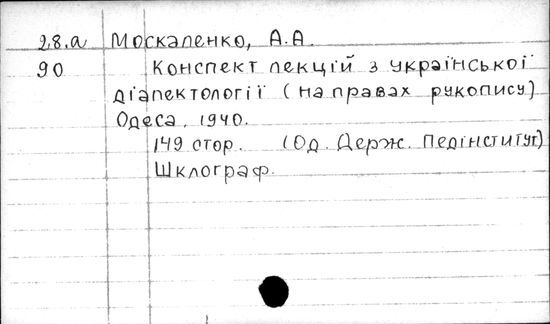 28.а Москаленко, А.А.
90 Конспект лекцій з української
діалектології (на правах рукопису)
Одеса, 1940.
149 стор. (Од. Держ. Педінститут)
Шклограф.